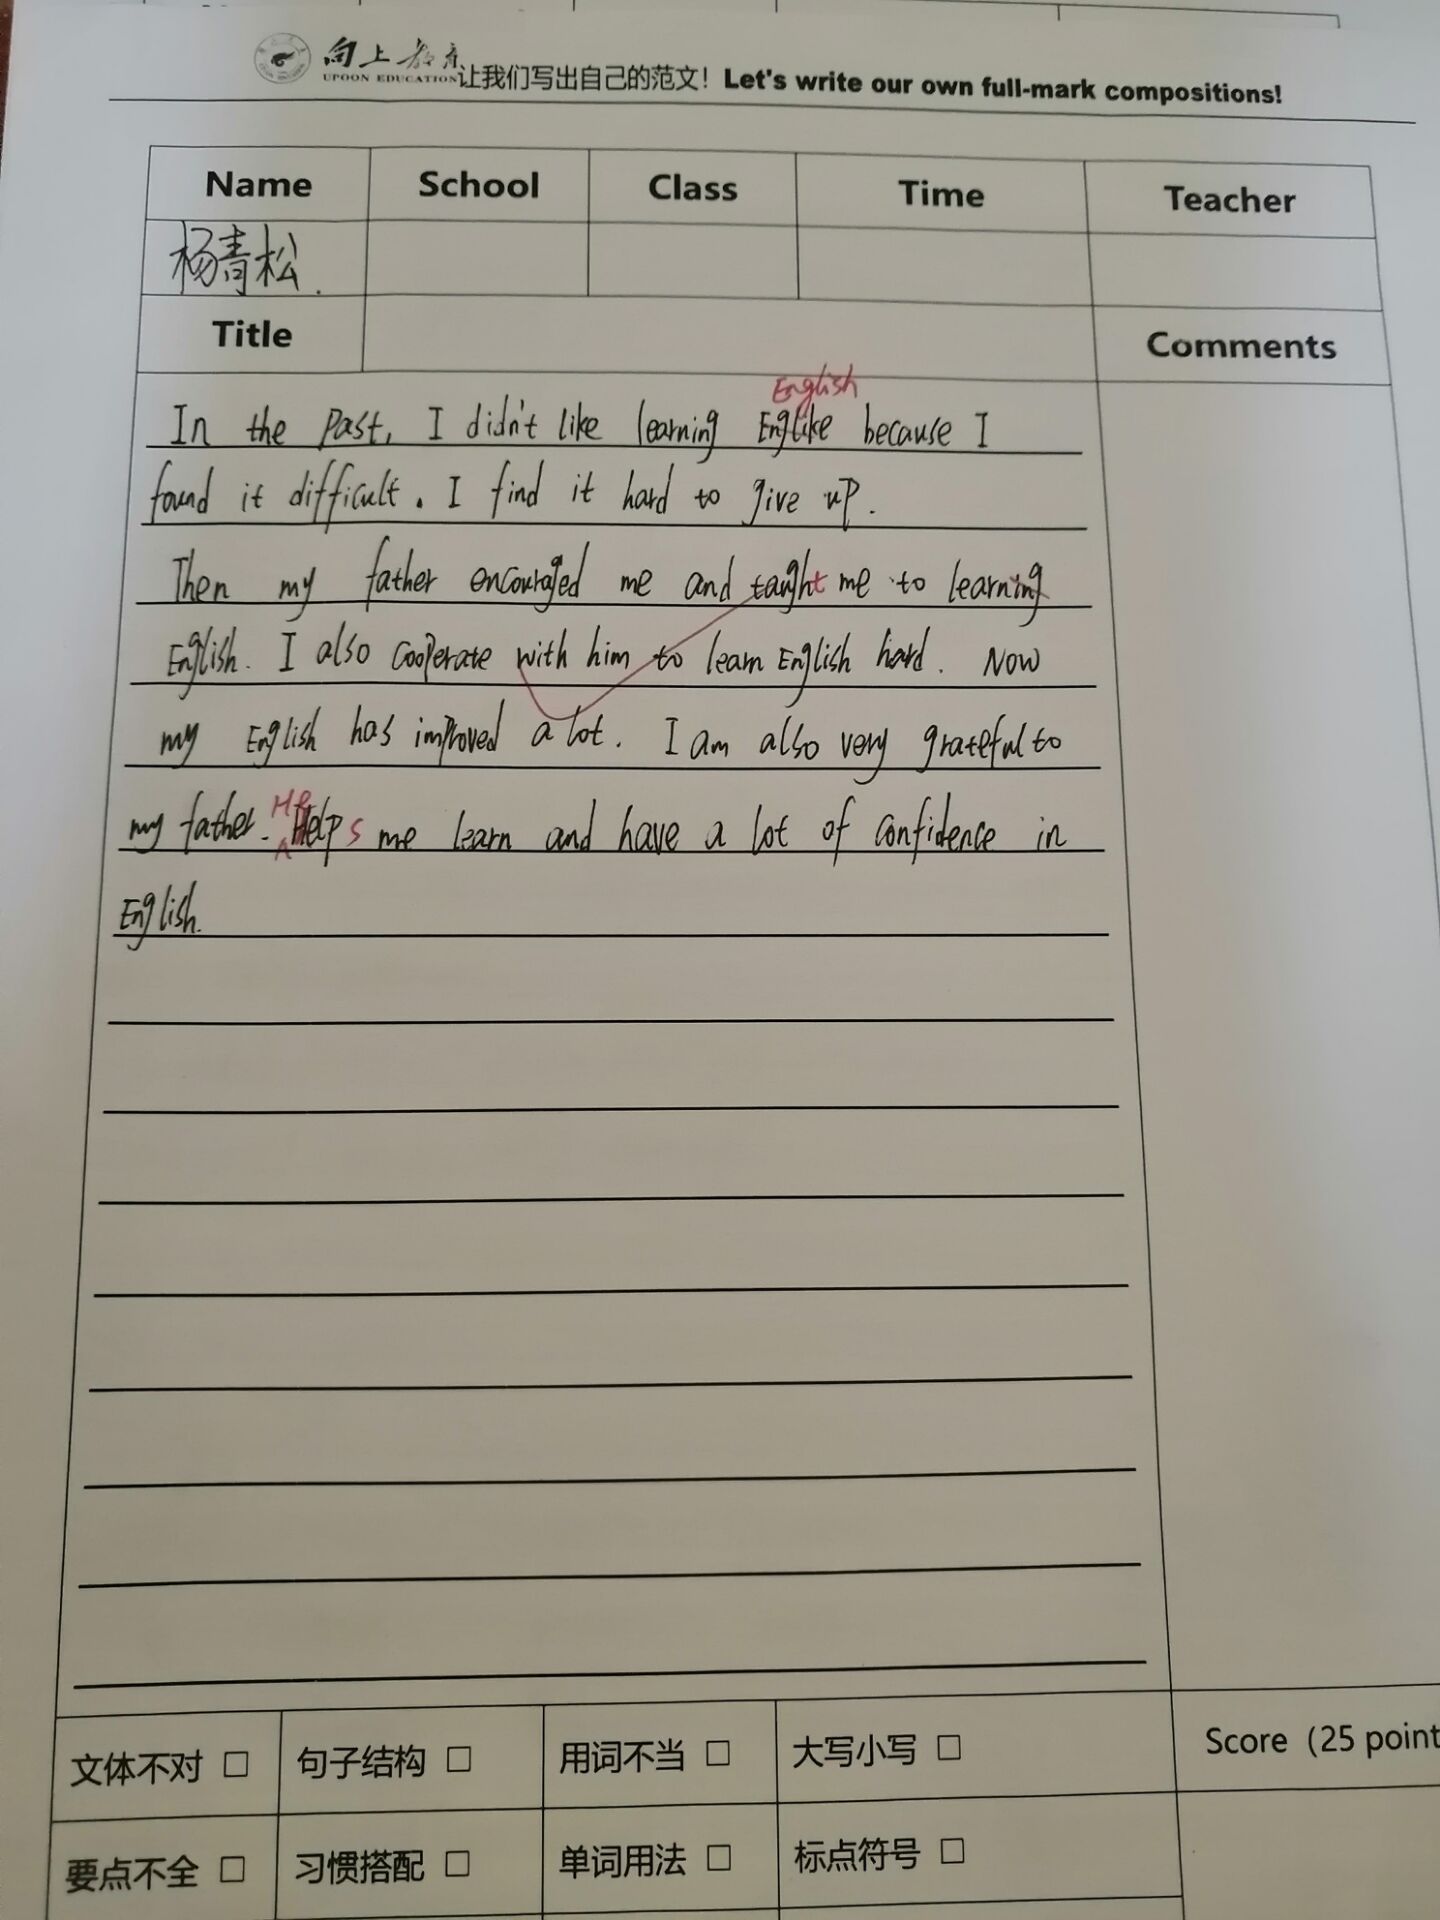 向上教育
UPOON EDUCATION
让我们写出自己的范文！Let's write our own full-mark compositions!
Name School Class Time Teacher
杨青松.
Title Comments
English
In the past, I didn't like learning Englike because I
found it difficult. I find it hard to give up.
Then my father encouraged me and taught me to learning
English. I also cooperate with him to learn English hard. Now
my English has improved a lot. I am also very grateful to
my father. He Helps me learn and have a lot of confidence in
English.
文体不对 □ 句子结构 □ 用词不当 □ 大写小写 □ Score（25 point
要点不全 □ 习惯搭配 □ 单词用法 □ 标点符号 □